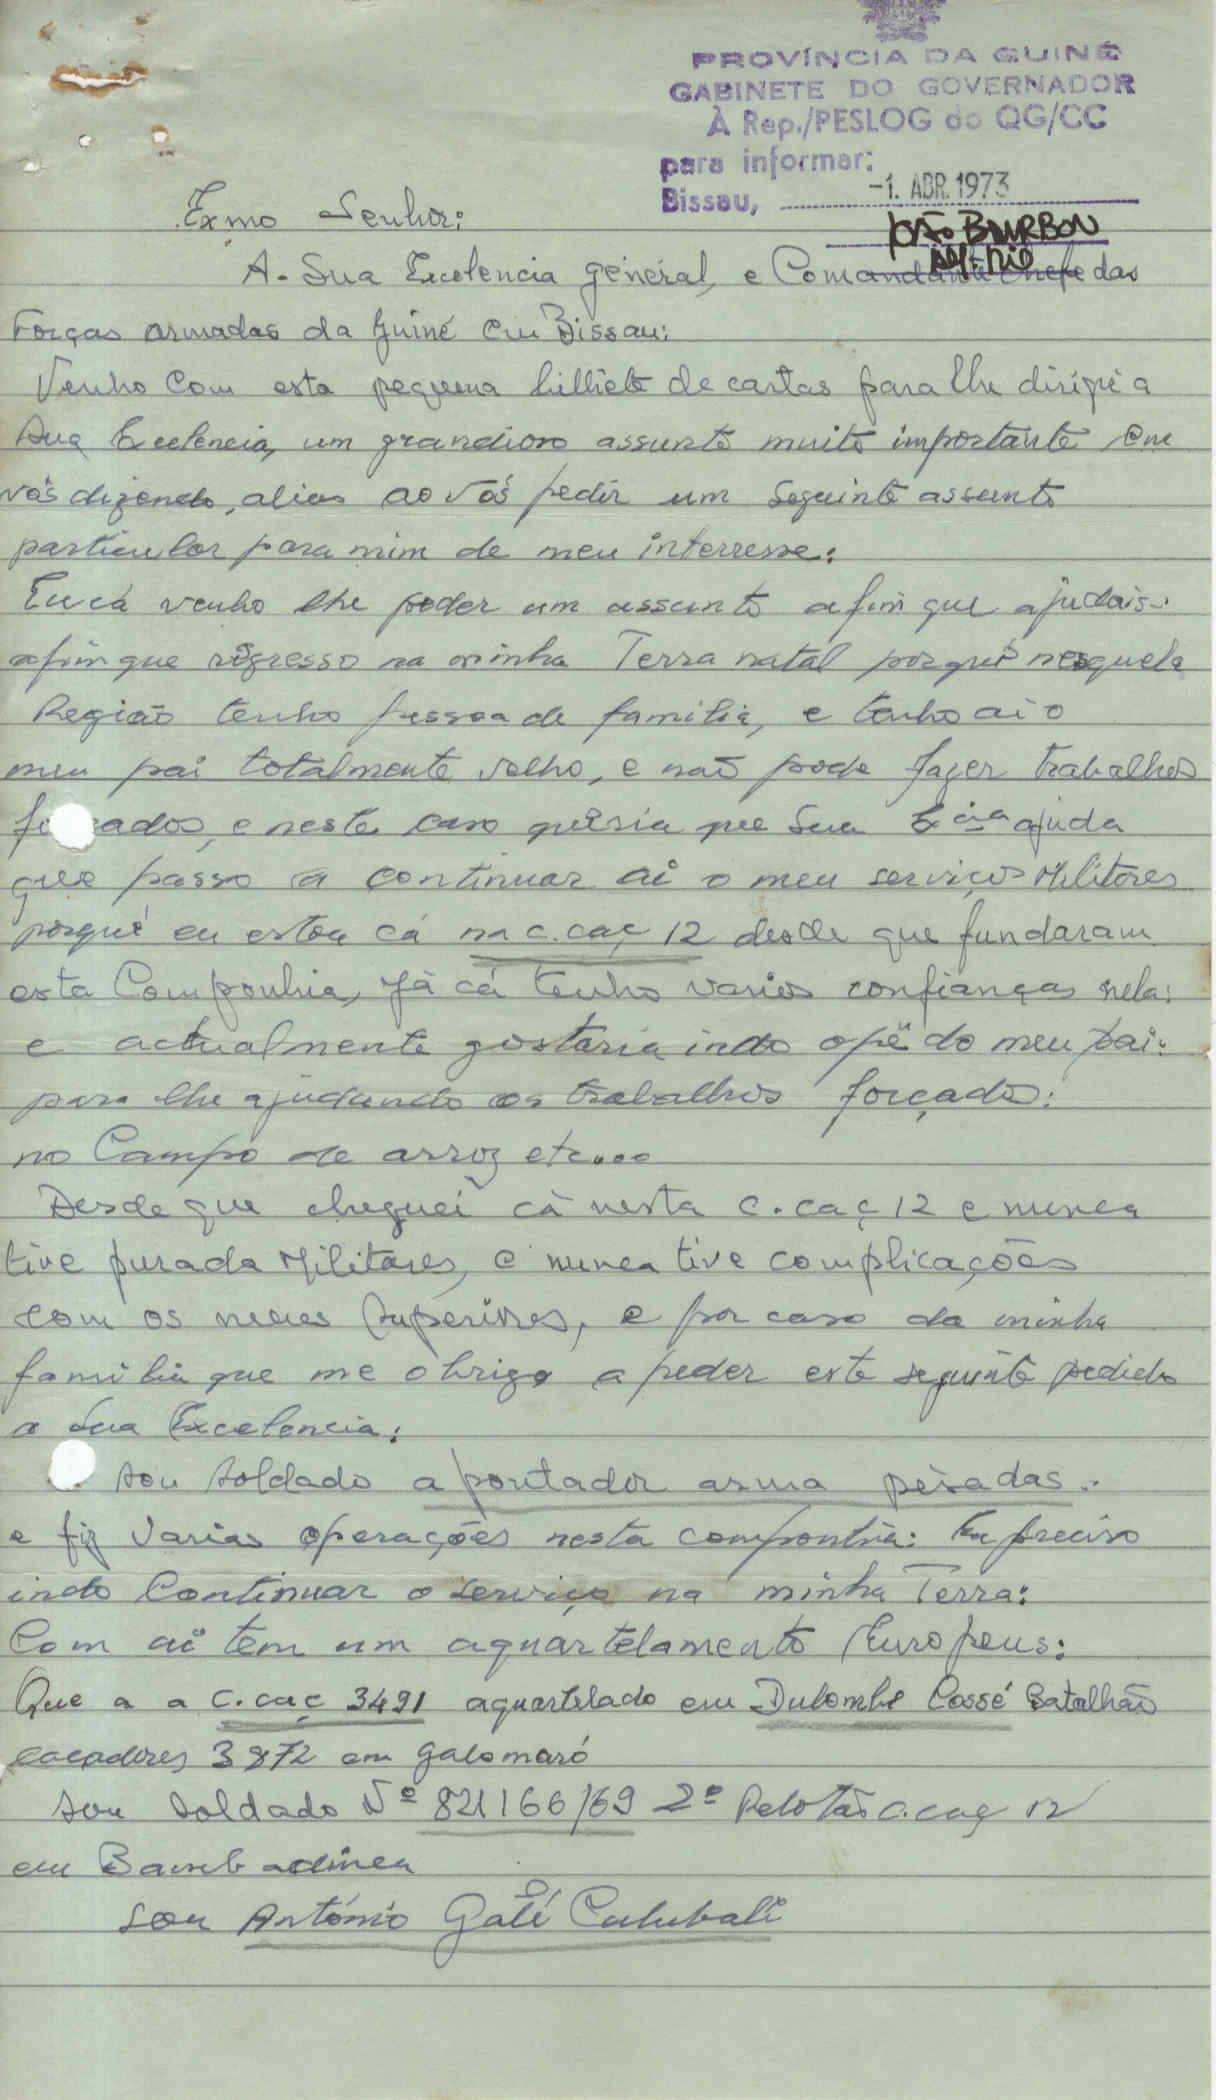 PROVÍNCIA DA GUINÉ
GABINETE DO GOVERNADOR
À Rep./PESLOG do QG/CC
para informar:
Bissau, -1. ABR. 1973
JOÃO BOURBON
Exmo Senhor:
A. Sua Excelencia General, e Comandante Chefe das
Forças armadas da Guiné em Bissau:
Venho com esta pequena bilhete de cartas para lhe dirigir a
Sua Excelencia, um grandioso assunto muito importante em
vós dizendo, alias ao vós pedir um seguinte assunto
particular para mim de meu interresse:
Eu cá venho lhe peder um assunto afim que ajudais.
afim que regresso na minha Terra natal porqué nesquela
Região tenho pessoa de familia, e tenho ai o
meu pai totalmente velho, e não pode fazer trabalhos
forçados, e neste caso queria que Sua Excia ajuda
que passo a continuar ai o meu serviços Militares
porqué eu estou cá na c.caç 12 desde que fundaram
esta Componhia, Já cá tenho varios confianças nela:
e actualmente gostaria indo opé do meu pai:
para lhe ajudando os trabalhos forçado:
no Campo de arroz etc...
Desde que cheguei cá nesta c.caç 12 e nunca
tive purada Militares, e nunca tive complicações
com os meus Superiores, e por caso da minha
familia que me obrigo a peder este seguinte pedido
a Sua Excelencia:
Sou Soldado apontador arma pesadas.
e fiz varias operações nesta componhia: Eu preciso
indo Continuar o serviço na minha Terra:
Com ai tem um aquartelamento Europeus:
Que a a C.caç 3491 aquartelado em Dulombi Cossé Batalhão
cacadores 3872 em Galomaró
Sou Soldado Nº 821166/69 2º Pelotão c.caç 12
em Bambadinca
Sou António Galé Culubali